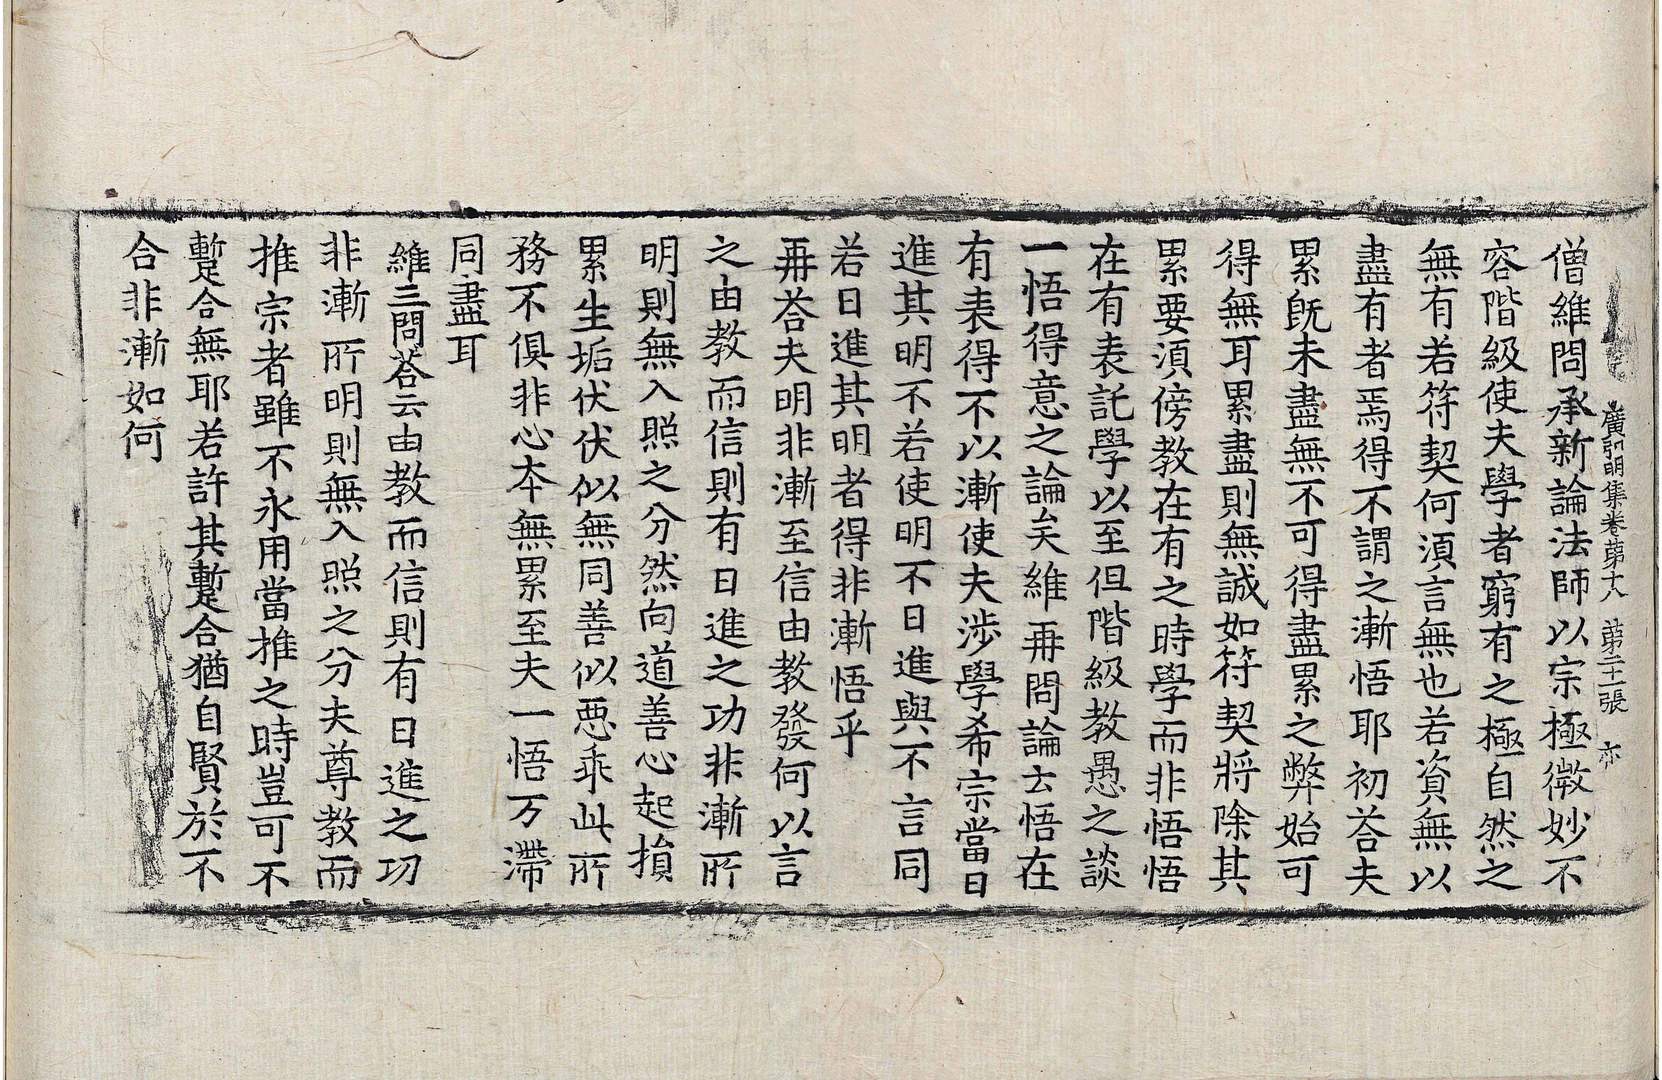 廣弘明集卷第十八
僧維問承新論法師以宗極微妙不
容階級使夫學者窮有之極自然之
無有若符契何湏言無也若資無以
盡有者焉得不謂之漸悟耶初荅夫
累旣未盡無不可得盡累之弊始可
得無耳累盡則無誠如符契將除其
累要湏傍教在有之時學而非悟悟
在有表託學以至但階級教愚之談
一悟得意之論矣維再問論云悟在
有表得不以漸使夫涉學希宗當日
進其明不若使明不日進與不言同
若日進其明者得非漸悟乎
再荅夫明非漸至信由教發何以言
之由教而信則有日進之功非漸所
明則無入照之分然向道善心起損
累生垢伏伏似無同善似惡乖此所
務不俱非心本無累至夫一悟万滯
同盡耳
維三問荅云由教而信則有日進之功
非漸所明則無入照之分夫尊教而
推宗者雖不永用當推之時豈可不
蹔合無耶若許其蹔合猶自賢於不
合非漸如何